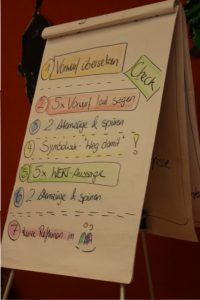 1 Vorwurf übersetzen
Check
2 5x Vorwurf laut sagen
3 2 Atemzüge & spüren
4 Symbolisch "Weg damit" !
5 5x WERT-Aussage
6 2 Atemzüge & spüren
7 Reflexion in